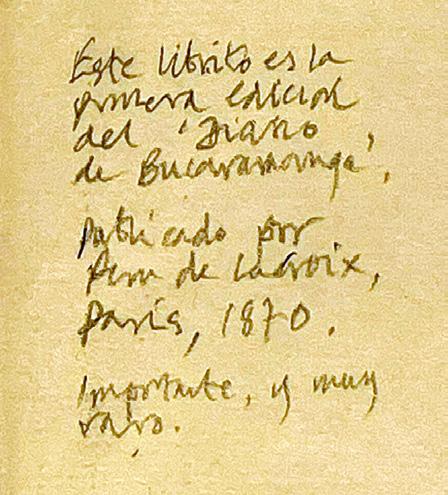 Este librito es la
primera edicion
del 'Diario
de Bucaramanga',
publicado por
Peru de Lacroix,
París, 1870.
Importante, y muy
raro.